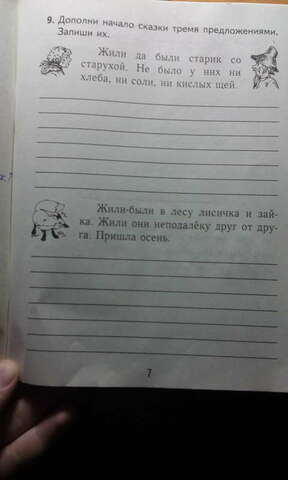 9. Дополни начало сказки тремя предложениями.
Запиши их.
Жили да были старик со
старухой. Не было у них ни
хлеба, ни соли, ни кислых щей.
Жили-были в лесу лисичка и зай-
ка. Жили они неподалёку друг от дру-
га. Пришла осень.
7